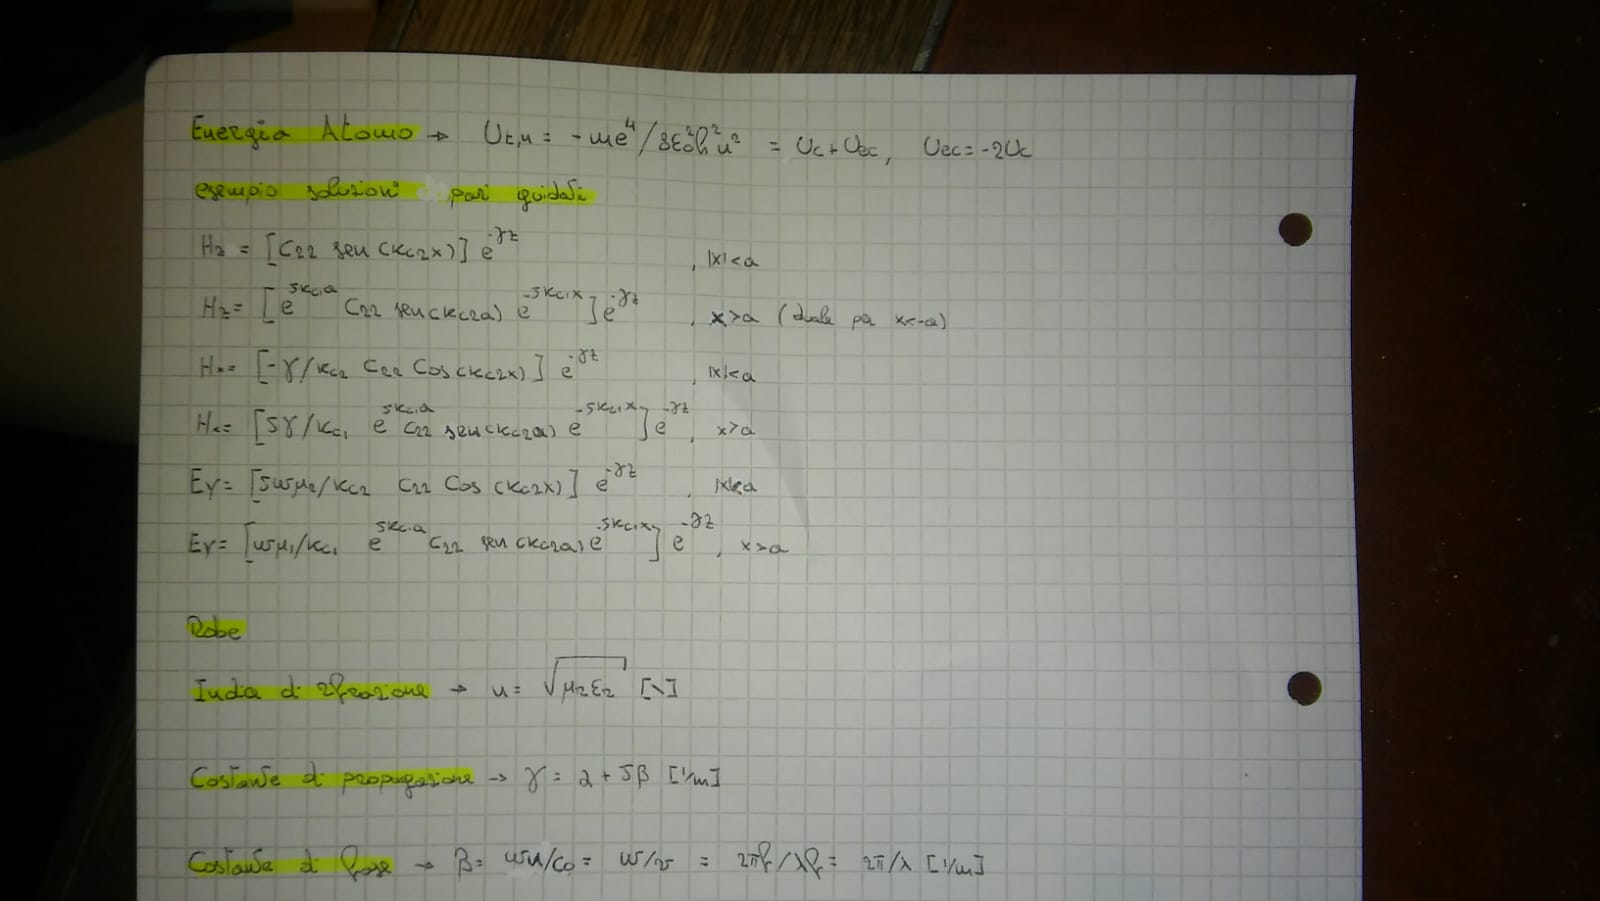 Energia Atomo → Ut,n = -me⁴/8ε₀²h²n² = Uc + Uec, Uec = -2Uc
esempio soluzioni pari guidati
Hz = [C22 sen(kc2x)] e^-γz , |x|<a
Hz = [e^jkc1a C22 sen(kc2a) e^-jkc1x] e^-γz , x>a (duale per x<-a)
Hx = [-γ/kc2 C22 cos(kc2x)] e^-γz , |x|<a
Hx = [jγ/kc1 e^jkc1a C22 sen(kc2a) e^-jkc1x] e^-γz , x>a
Ey = [jωμ2/kc2 C22 cos(kc2x)] e^-γz , |x|<a
Ey = [ωμ1/kc1 e^jkc1a C22 sen(kc2a) e^-jkc1x] e^-γz , x>a
Robe
Indice di rifrazione → n = √μrεr [\]
Costante di propagazione → γ = α + jβ [1/m]
Costante di fase → β = ωn/c₀ = ω/v = 2πf/λf = 2π/λ [1/m]